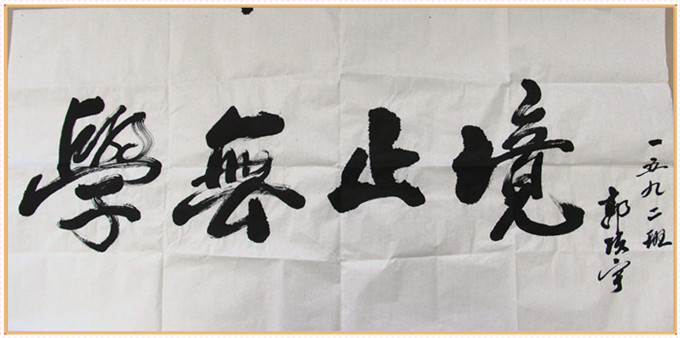 學無止境
一五九二班
郭瑱宇